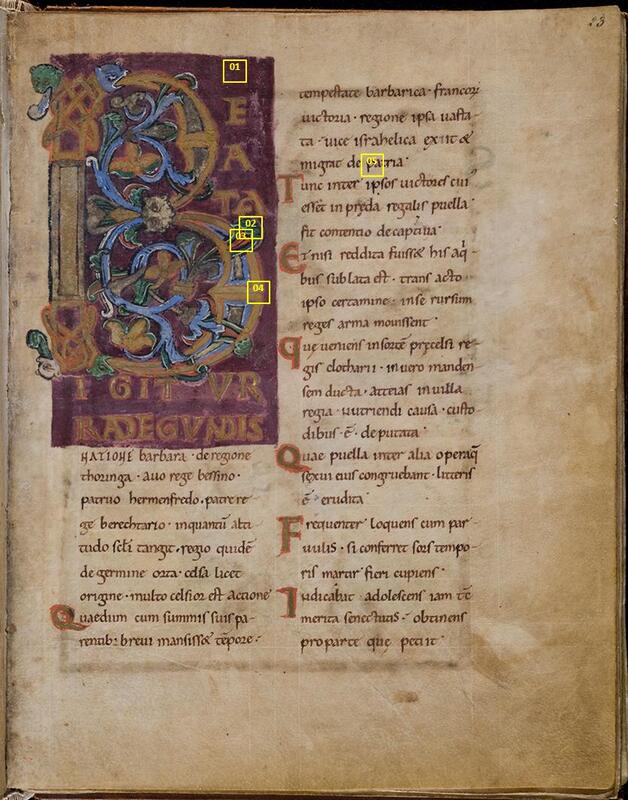 23
B
E
A
TA
IGITVR
RADEGVNDIS
NATIONE barbara · de regione
thoringa · auo rege bessino ·
patruo hermenfredo · patre re-
ge berechtario · inquantū alti-
tudo sc̄li tangit · regio quidē
de germine orta · celsa licet
origine · multo celsior est actione
Quaedum cum summis suis pa-
rentib: breui mansiss& tēpore ·
tempestate barbarica · francoꝝ
uictoria · regione ipsa uasta-
ta · uice israhelica exiit &
migrat de patria ·
Tunc inter ipsos uictores cui'
ess& in pręda regalis puella
fit contentio de captiua ·
Et nisi reddita fuiss& his
bus sublata est · trans acto
ipso certamine · in se rursum
reges arma mouissent ·
que ueniens in sortē pręcelsi re-
gis clotharii · in uero manden-
sem ducta · atteias in uilla
regia · nutriendi causa · custo-
dibus · ē · deputata ·
Quae puella inter alia opera
sexui eius congruebant · litteris
ē · erudita ·
Frequenter loquens cum par-
uulis · si conferret sors tempo-
ris martir fieri cupiens ·
Iudicabat adolescens iam tē
merita senectutis · obtinens
pro parte que petiit ·
01
02
03
04
05